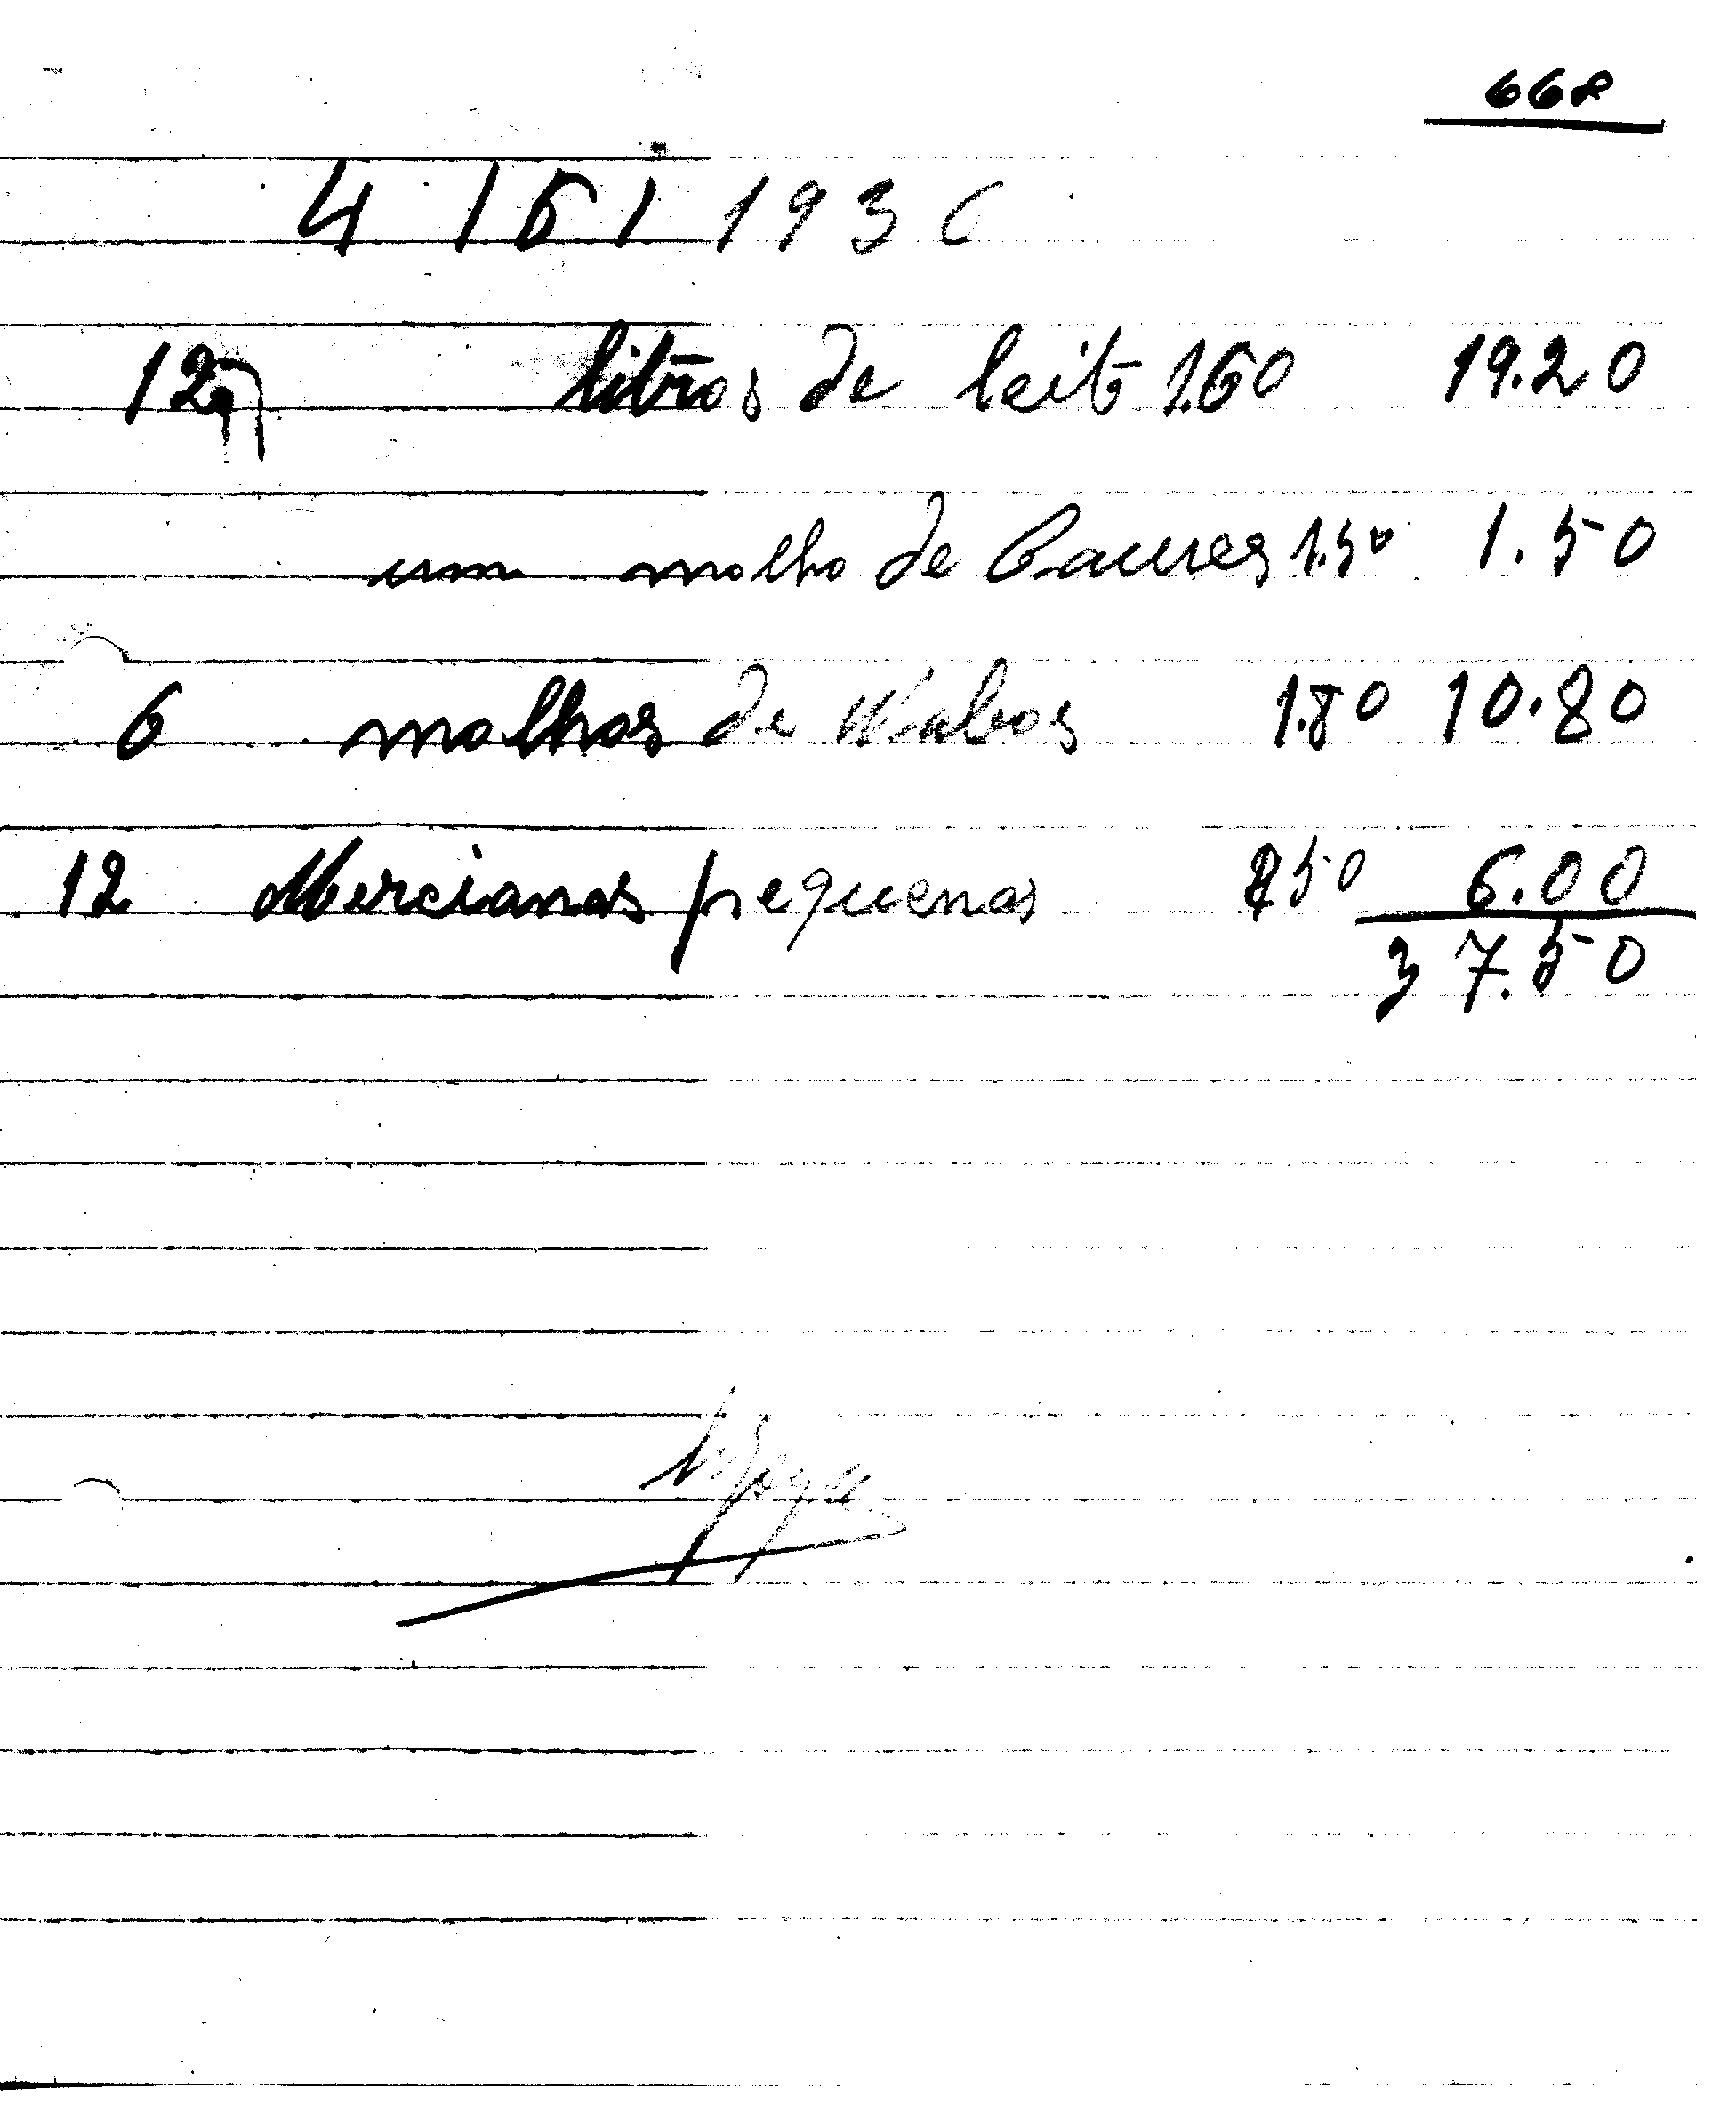 668
4/6/1936
12 litros de leite 1.60 19.20
um molho de Couves 1.50 1.50
6 molhos de Nabos 1.80 10.80
12 Mercianas pequenas 50 6.00
37.50